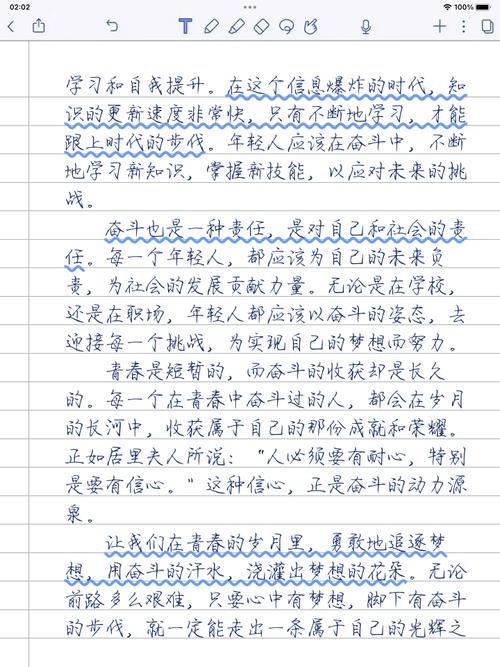 02:02
100%
T
学习和自我提升。在这个信息爆炸的时代，知
识的更新速度非常快，只有不断地学习，才能
跟上时代的步伐。年轻人应该在奋斗中，不断
地学习新知识，掌握新技能，以应对未来的挑
战。
奋斗也是一种责任，是对自己和社会的责
任。每一个年轻人，都应该为自己的未来负
责，为社会的发展贡献力量。无论是在学校，
还是在职场，年轻人都应该以奋斗的姿态，去
迎接每一个挑战，为实现自己的梦想而努力。
青春是短暂的，而奋斗的收获却是长久
的。每一个在青春中奋斗过的人，都会在岁月
的长河中，收获属于自己的那份成就和荣耀。
正如居里夫人所说：“人必须要有耐心，特别
是要有信心。”这种信心，正是奋斗的动力源
泉。
让我们在青春的岁月里，勇敢地追逐梦
想，用奋斗的汗水，浇灌出梦想的花朵。无论
前路多么艰难，只要心中有梦想，脚下有奋斗
的步伐，就一定能走出一条属于自己的光辉之